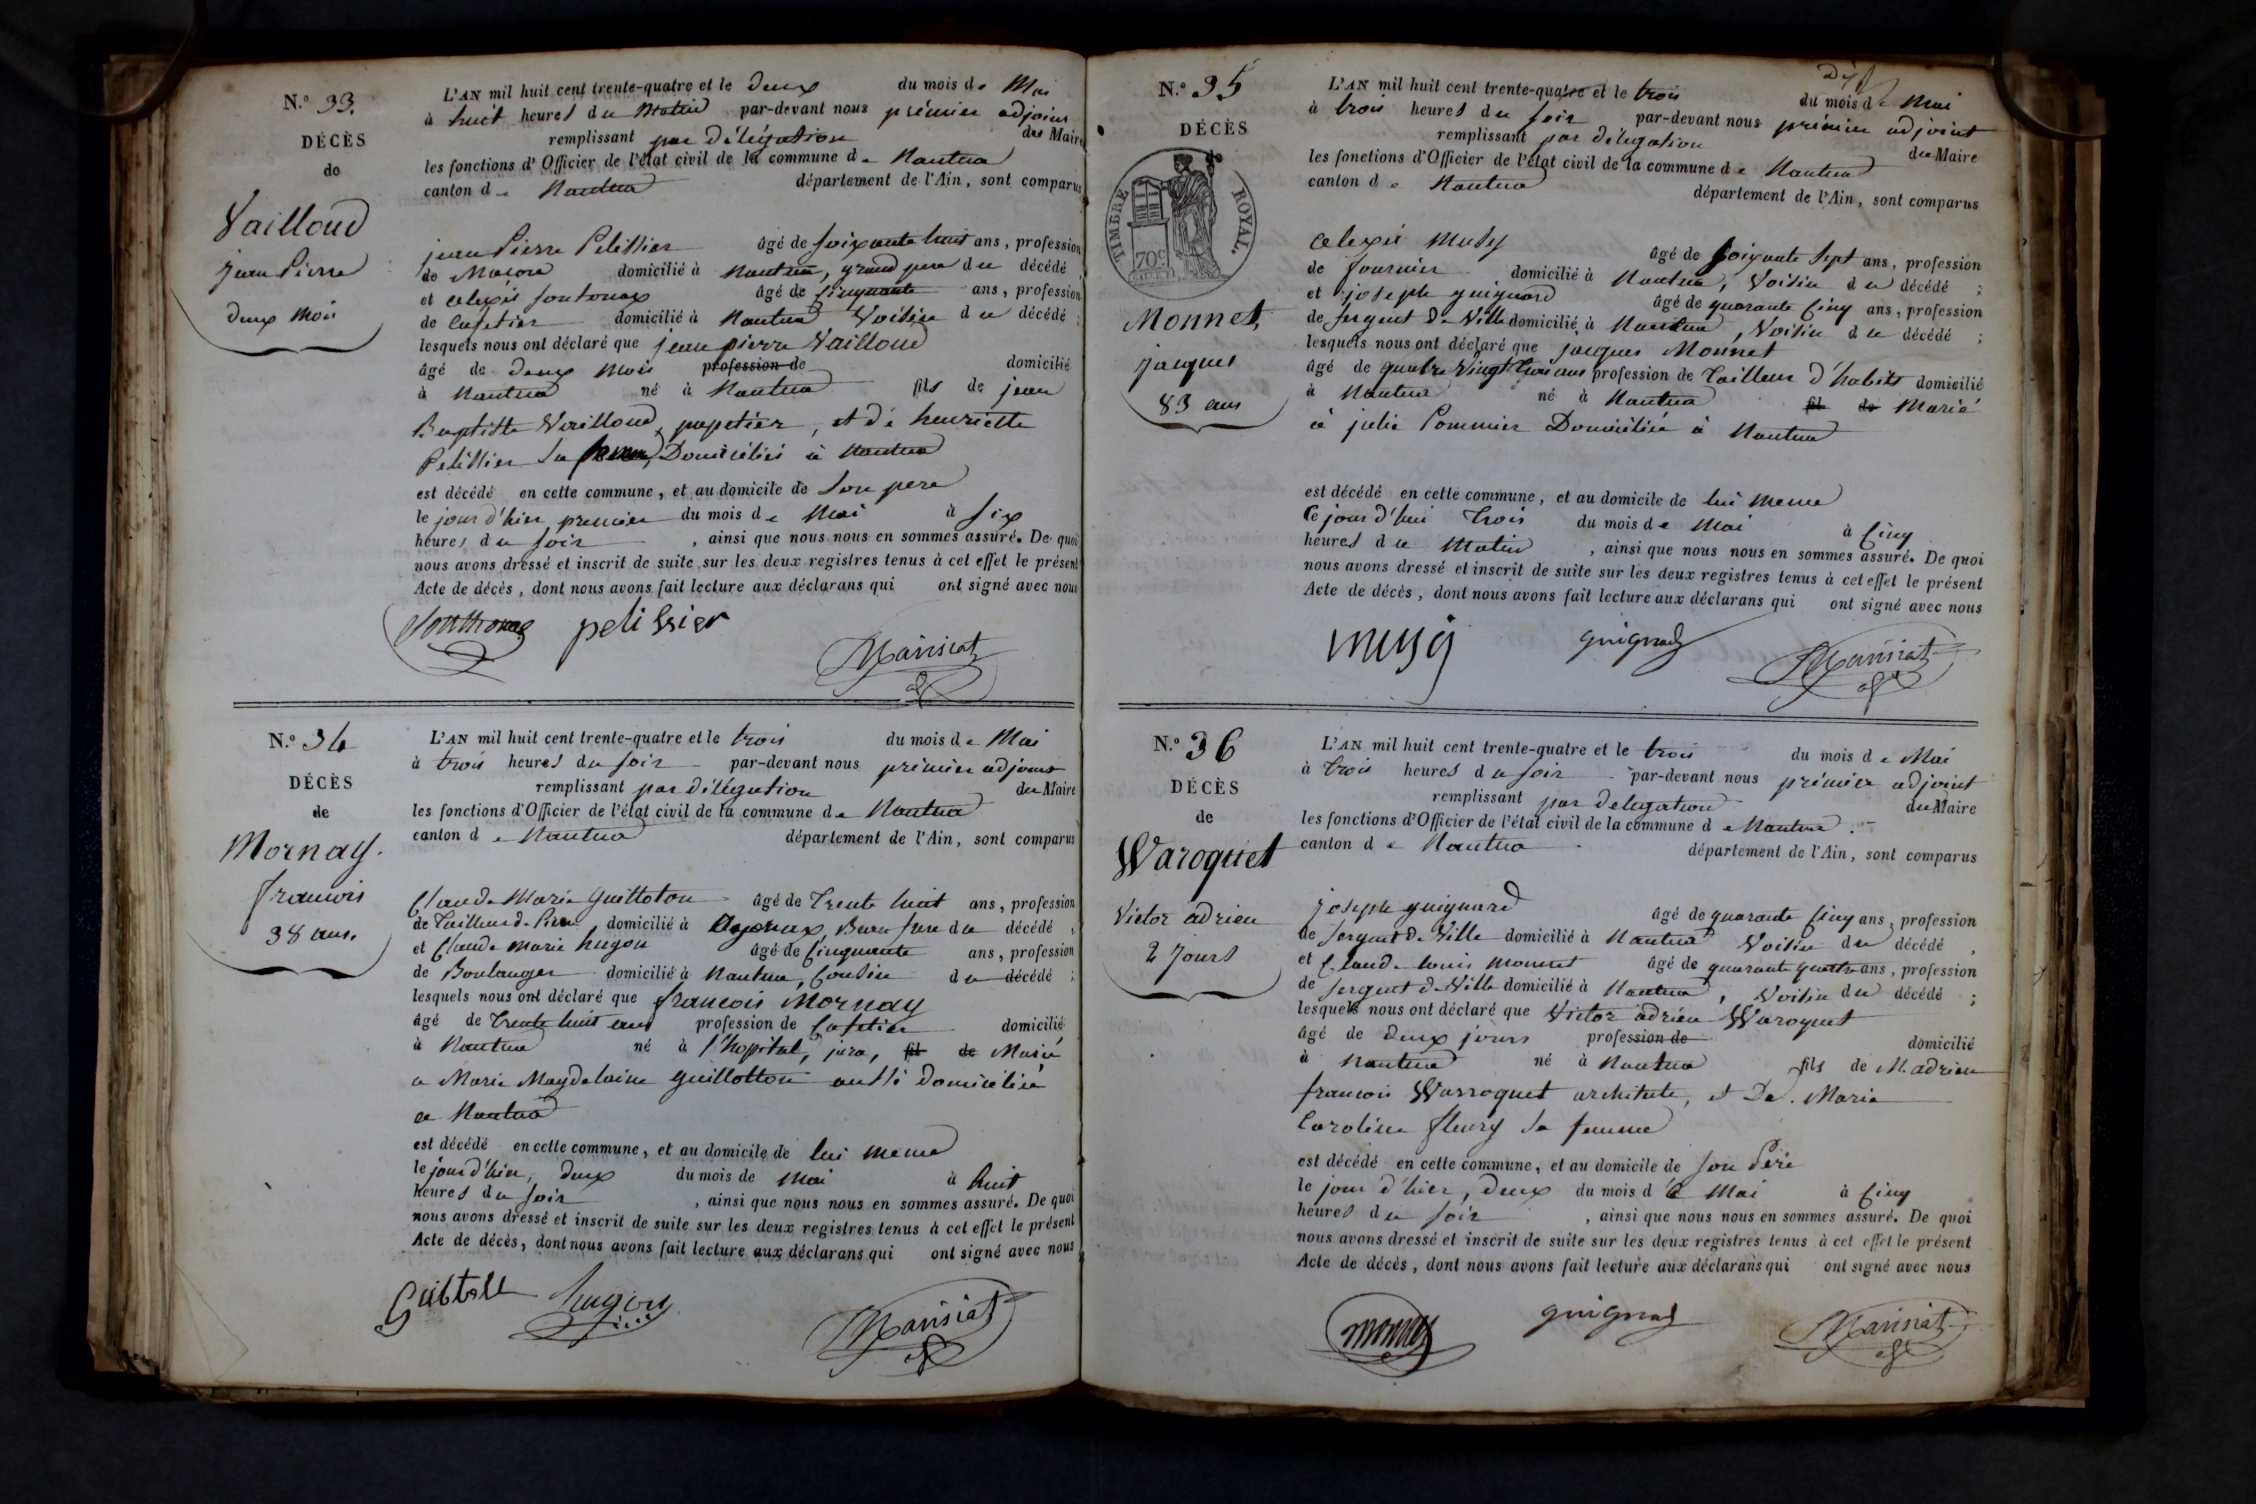 N.º 33.
DÉCÈS
de
Vailloud
jean Pierre
deux mois
L'AN mil huit cent trente-quatre et le deux du mois de Mai
à huit heures du Matin par-devant nous prémier adjoint
remplissant par délégation du Maire
les fonctions d'Officier de l'état civil de la commune de Nantua
canton de Nantua département de l'Ain, sont comparus
jean Pierre Pelissier âgé de soixante huit ans, profession
de Macon domicilié à Nantua, grand pere du décédé
et alexis Sonthonax âgé de cinquante ans, profession
de Cafetier domicilié à Nantua Voisin du décédé ;
lesquels nous ont déclaré que jean pierre Vailloud
âgé de deux mois profession de domicilié
à Nantua né à Nantua fils de jean
Baptiste Vailloud, papetier, et de henriette
Pelissier sa femme, Domiciliés à Nantua
est décédé en cette commune, et au domicile de son pere
le jour d'hier, premier du mois de Mai à six
heures du soir, ainsi que nous nous en sommes assuré. De quoi
nous avons dressé et inscrit de suite sur les deux registres tenus à cet effet le présent
Acte de décès, dont nous avons fait lecture aux déclarans qui ont signé avec nous
Sonthonax pelissier
Marisiat
N.º 34
DÉCÈS
de
Mornay.
francois
38 ans.
L'AN mil huit cent trente-quatre et le trois du mois de Mai
à trois heures du soir par-devant nous prémier adjoint
remplissant par délégation du Maire
les fonctions d'Officier de l'état civil de la commune de Nantua
canton de Nantua département de l'Ain, sont comparus
Claude Marie Guilloton âgé de Trente huit ans, profession
de Tailleur de Pierre domicilié à Oyonax, Beau frere du décédé ,
et Claude Marie hugon âgé de Cinquante ans, profession
de Boulanger domicilié à Nantua, Cousin du décédé ;
lesquels nous ont déclaré que francois Mornay
âgé de trente huit ans profession de Cafetier domicilié
à Nantua né à l'hopital, jura, fil de Marié
a Marie Magdelaine guillotton aussi domiciliée
a Nantua
est décédé en cette commune, et au domicile de lui meme
le jour d'hier, deux du mois de Mai à huit
heures du soir, ainsi que nous nous en sommes assuré. De quoi
nous avons dressé et inscrit de suite sur les deux registres tenus à cet effet le présent
Acte de décès, dont nous avons fait lecture aux déclarans qui ont signé avec nous
hugon
Marisiat
N.º 35
DÉCÈS
de
TIMBRE ROYAL.
70 C
Monnet,
jacques
83 ans
L'AN mil huit cent trente-quatre et le trois du mois de Mai
à trois heures du soir par-devant nous prémier adjoint
remplissant par délégation du Maire
les fonctions d'Officier de l'état civil de la commune de Nantua
canton de Nantua département de l'Ain, sont comparus
alexis Musy âgé de soixante sept ans, profession
de fournier domicilié à Nantua, Voisin du décédé ;
et joseph guignard âgé de quarante Cinq ans, profession
de sergent de Ville domicilié à Nantua, Voisin du décédé ;
lesquels nous ont déclaré que jacques Monnet
âgé de quatre Vingt trois ans profession de Tailleur d'habits domicilié
à Nantua né à Nantua fil de Marié
à julie Pommier Domiciliée à Nantua
est décédé en cette commune, et au domicile de lui meme
Ce jour d'hui Trois du mois de Mai à Cinq
heures du Matin, ainsi que nous nous en sommes assuré. De quoi
nous avons dressé et inscrit de suite sur les deux registres tenus à cet effet le présent
Acte de décès, dont nous avons fait lecture aux déclarans qui ont signé avec nous
musy guignard
Marisiat
N.º 36
DÉCÈS
de
Waroquet
Victor adrien
2 Jours
L'AN mil huit cent trente-quatre et le trois du mois de Mai
à trois heures du soir par-devant nous prémier adjoint
remplissant par delegation du Maire
les fonctions d'Officier de l'état civil de la commune de Nantua
canton de Nantua département de l'Ain, sont comparus
joseph guignard âgé de quarante Cinq ans, profession
de sergent de Ville domicilié à Nantua Voisin du décédé ,
et Claude louis Monnet âgé de quarante quatre ans, profession
de sergent de Ville domicilié à Nantua, Voisin du décédé ;
lesquels nous ont déclaré que Victor adrien Waroquet
âgé de deux jours profession de domicilié
à Nantua né à Nantua fils de M. adrien
francois Warroquet architecte, et De. Marie
Caroline fleury sa femme
est décédé en cette commune, et au domicile de son Père
le jour d'hier, deux du mois de Mai à Cinq
heures du soir, ainsi que nous nous en sommes assuré. De quoi
nous avons dressé et inscrit de suite sur les deux registres tenus à cet effet le présent
Acte de décès, dont nous avons fait lecture aux déclarans qui ont signé avec nous
monnet guignard
Marisiat